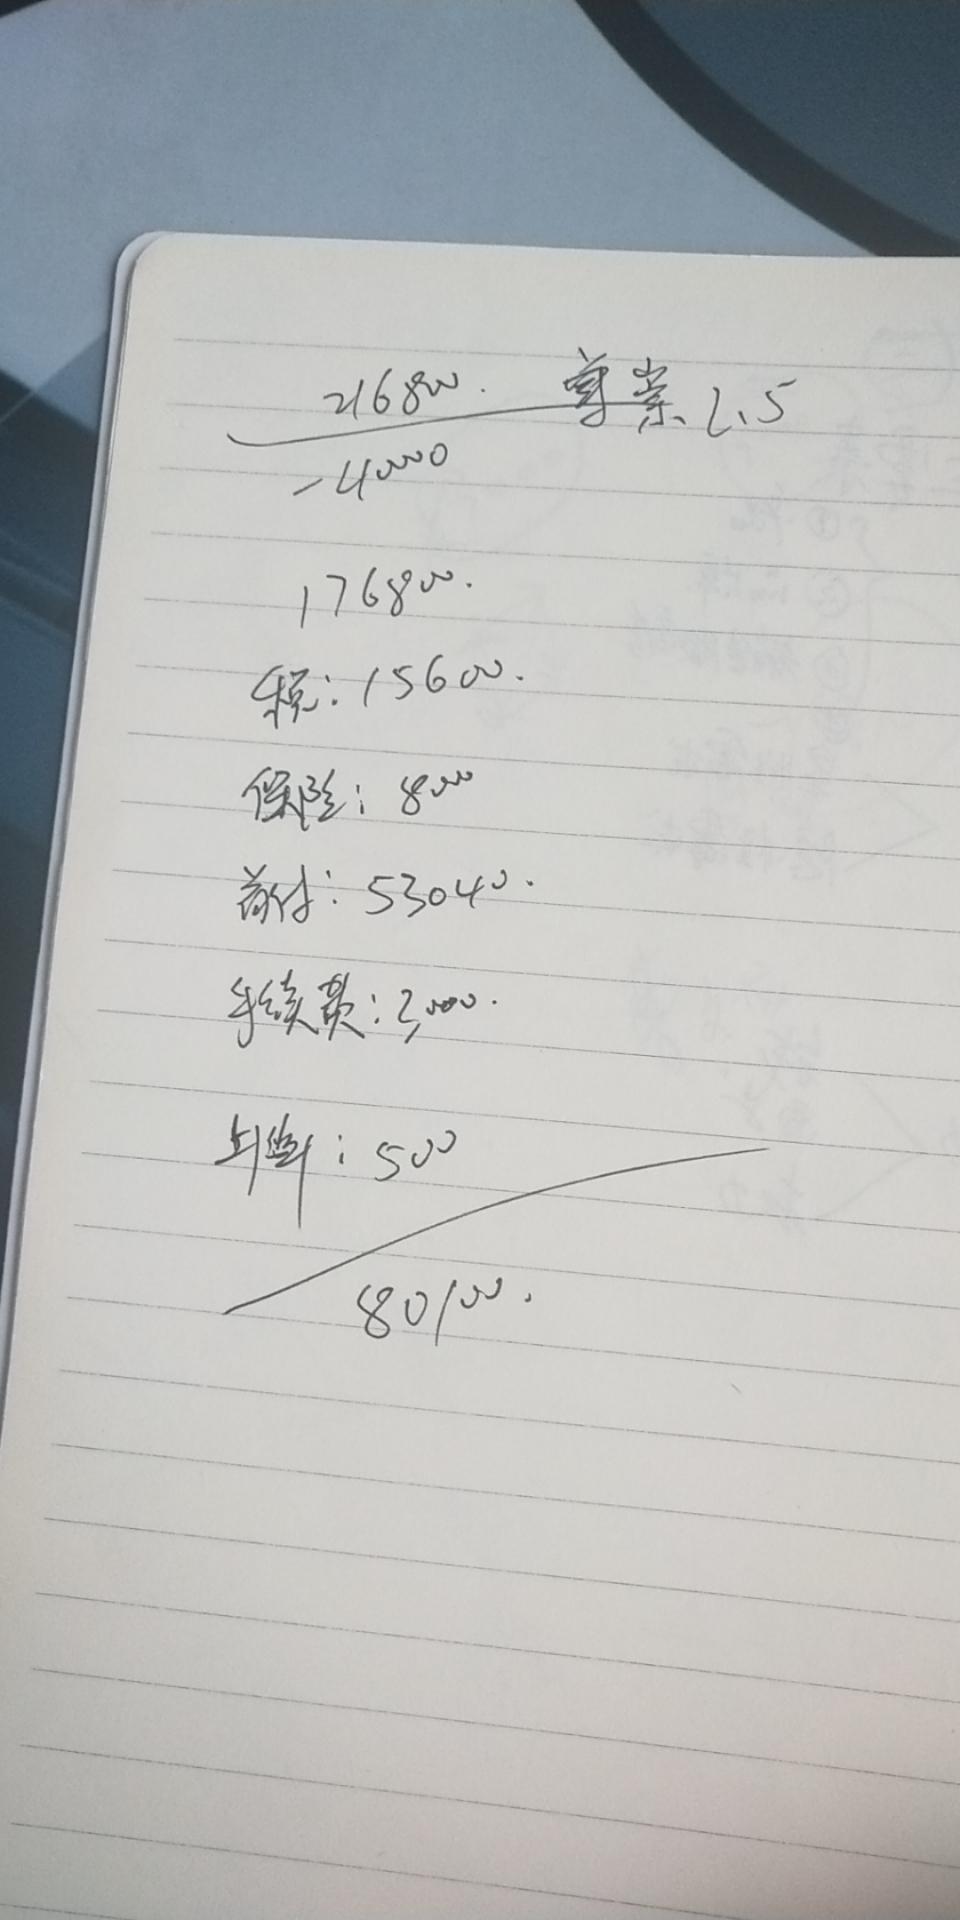 216800. 尊崇 2.5
-40000
176800.
税: 15600.
保险: 8000
首付: 53040.
手续费: 3,000.
上牌: 500
80100.